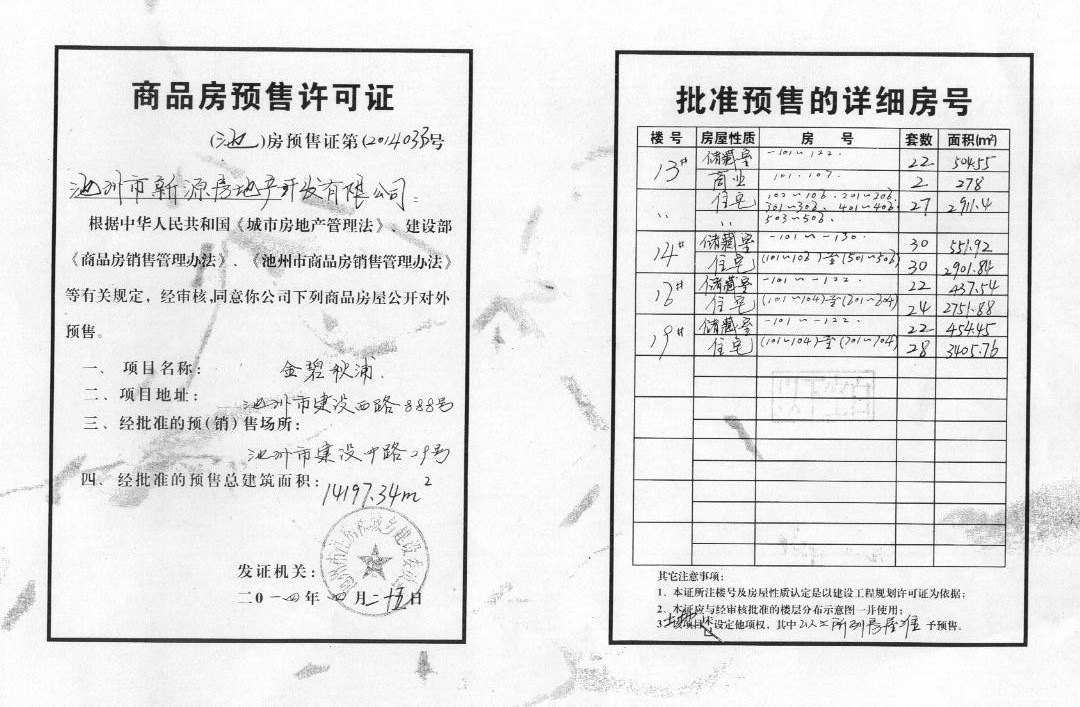 商品房预售许可证
(池)房预售证第(2014033号
池州市新源房地产开发有限公司:
根据中华人民共和国《城市房地产管理法》、建设部
《商品房销售管理办法》、《池州市商品房销售管理办法》
等有关规定,经审核,同意你公司下列商品房屋公开对外
预售。
一、项目名称: 金碧秋浦.
二、项目地址: 池州市建设西路888号
三、经批准的预(销)售场所:
池州市建设中路29号
四、经批准的预售总建筑面积: 14197.34m²
发证机关:
二0一四年四月二十五日
批准预售的详细房号
楼号 房屋性质 房号 套数 面积(m²)
13# 储藏室 -101~-122. 22 504.55
商业 101. 107. 2 278
〃 住宅 102~106. 201~206. 27 2911.4
301~306. 401~406.
〃 503~506.
14# 储藏室 -101~-130. 30 551.92
住宅 (101~106)至(501~506) 30 2901.84
储藏室 -101~-122. 22 437.54
住宅 (101~104)至(601~604) 24 2751.88
19# 储藏室 -101~-122. 22 454.45
住宅 (101~104)至(701~704) 28 3405.76
其它注意事项:
1．本证所注楼号及房屋性质认定是以建设工程规划许可证为依据;
2．本证应与经审核批准的楼层分布示意图一并使用;
3．该项目 设定他项权,其中 所列房屋准予预售。